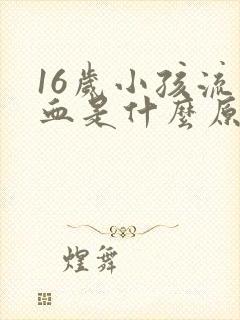 16歲小孩流
血是什麼原
煌舞